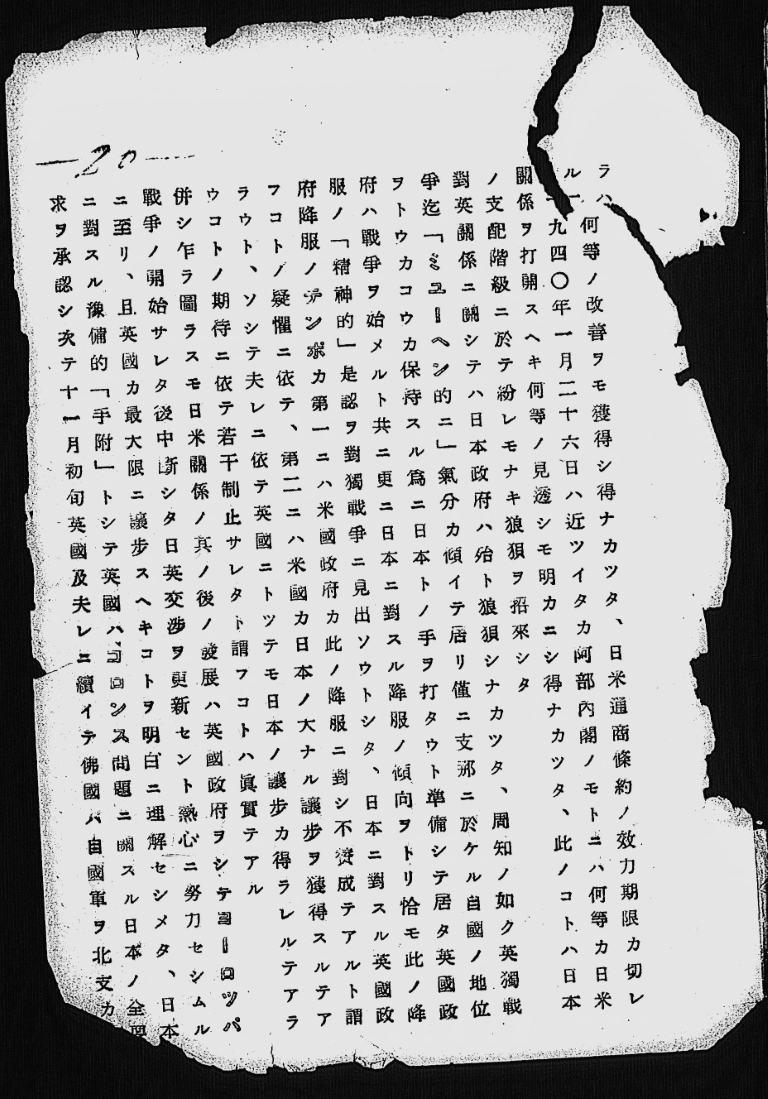 —20—
ラハ何等ノ改善ヲモ獲得シ得ナカツタ、日米通商條約ノ效力期限カ切レ
ル一九四〇年一月二十六日ハ近ツイタカ阿部內閣ノモトニハ何等カ日米
關係ヲ打開スヘキ何等ノ見透シモ明カニシ得ナカツタ、此ノコトハ日本
ノ支配階級ニ於テ紛レモナキ狼狽ヲ招來シタ
對英關係ニ關シテハ日本政府ハ殆ト狼狽シナカツタ、周知ノ如ク英獨戰
爭迄「ミユーヘン的ニ」氣分カ傾イテ居リ僅ニ支那ニ於ケル自國ノ地位
ヲトウカコウカ保持スル爲ニ日本トノ手ヲ打タウト準備シテ居タ英國政
府ハ戰爭ヲ始メルト共ニ更ニ日本ニ對スル降服ノ傾向ヲトリ恰モ此ノ降
服ノ「精神的」是認ヲ對獨戰爭ニ見出ソウトシタ、日本ニ對スル英國政
府降服ノテンポカ第一ニハ米國政府カ此ノ降服ニ對シ不賛成テアルト謂
フコトノ疑懼ニ依テ、第二ニハ米國カ日本ノ大ナル讓步ヲ獲得スルテア
ラウト、ソシテ夫レニ依テ英國ニトツテモ日本ノ讓步カ得ラレルテアラ
ウコトノ期待ニ依テ若干制止サレタト謂フコトハ眞實テアル
併シ乍ラ圖ラスモ日米關係ノ其ノ後ノ發展ハ英國政府ヲシテヨーロツパ
戰爭ノ開始サレタ後中斷シタ日英交涉ヲ更新セント熱心ニ努力セシムル
ニ至リ、且英國カ最大限ニ讓步スヘキコトヲ明白ニ理解セシメタ、日本
ニ對スル豫備的「手附」トシテ英國ハ、コロンス問題ニ關スル日本ノ全要
求ヲ承認シ次テ十一月初旬英國及夫レニ續イテ佛國ハ自國軍ヲ北支カ